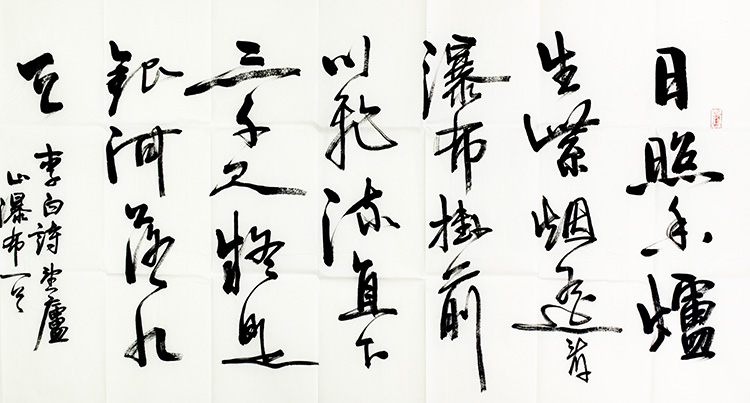 日照香爐
生紫烟遥看
瀑布掛前
川飛流直下
三千尺疑是
銀河落九
天
李白詩望廬
山瀑布一首